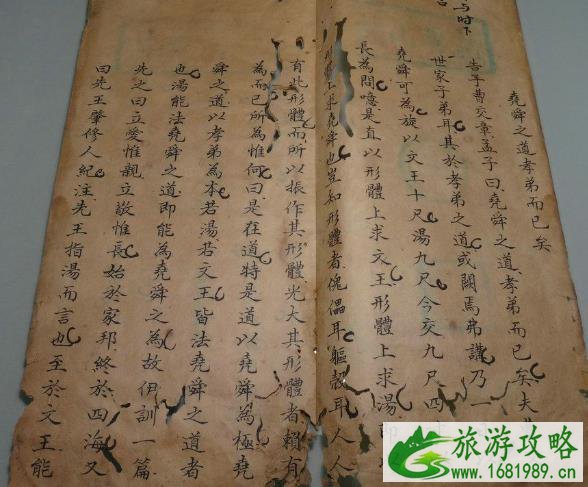 与时下
堯舜之道孝弟而已矣
告子曹交章孟子曰堯舜之道孝弟而已矣夫
世家子弟耳其於孝弟之道或闕焉弗講乃一
堯舜可為旋以文王十尺湯九尺今交九尺四
長為問噫是直以形體上求文王形體上求湯
形體上求堯舜也豈知形體者傀儡耳軀殼耳人人
有此形體而所以振作其形體光大其形體者賴有
為而已所為惟何曰是在道特是道以堯舜為極堯
舜之道以孝弟為本若湯若文王皆法堯舜之道者
也湯能法堯舜之道即能為堯舜之為故伊訓一篇
先之曰立愛惟親立敬惟長始於家邦終於四海又
曰先王肇修人紀注先王指湯而言也至於文王能
旅游攻略
www.1681989.cn